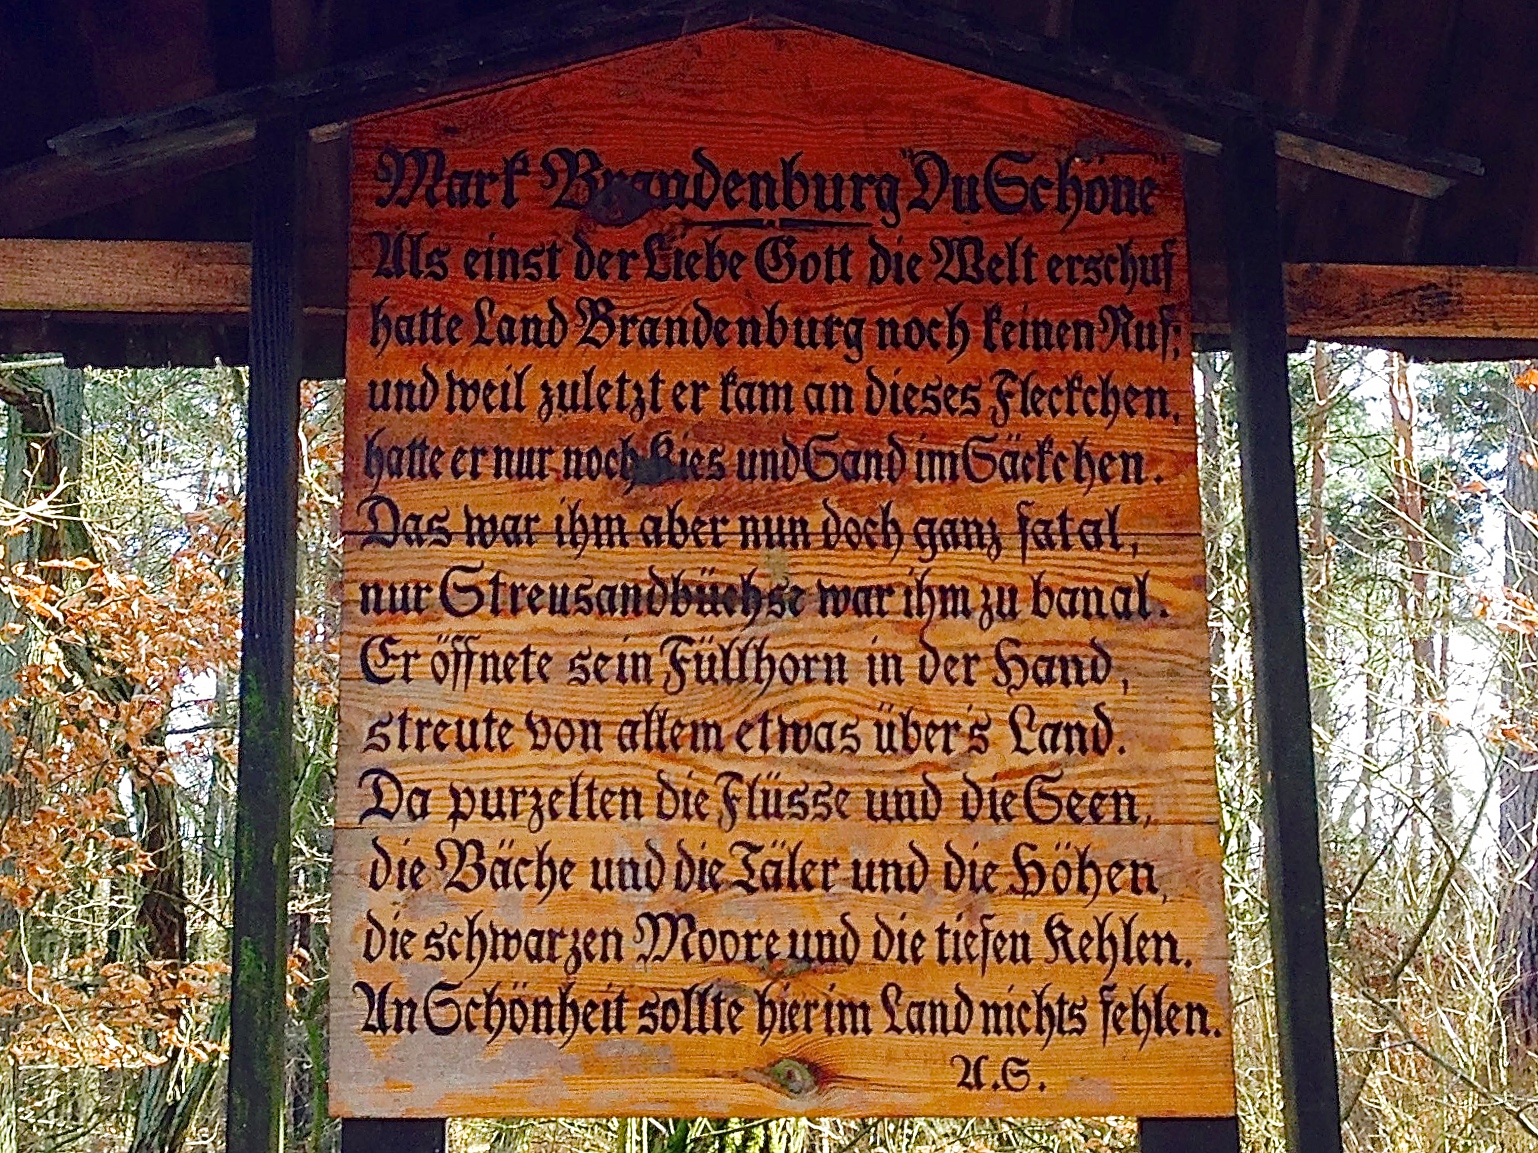 Mark Brandenburg "Du Schöne"
Als einst der Liebe Gott die Welt erschuf
hatte Land Brandenburg noch keinen Ruf;
und weil zuletzt er kam an dieses Fleckchen,
hatte er nur noch Kies und Sand im Säckchen.
Das war ihm aber nun doch ganz fatal,
nur Streusandbüchse war ihm zu banal.
Er öffnete sein Füllhorn in der Hand,
streute von allem etwas über's Land.
Da purzelten die Flüsse und die Seen,
die Bäche und die Täler und die Höhen,
die schwarzen Moore und die tiefen Kehlen.
An Schönheit sollte hier im Land nichts fehlen.
A.S.